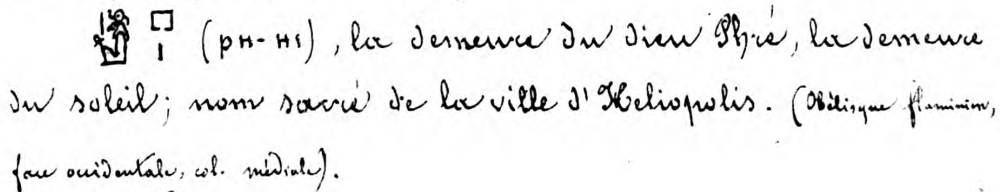 (ⲣⲏ-ⲏⲓ), la demeure du dieu Phré, la demeure
du soleil; nom sacré de la ville d'Héliopolis. (Obélisque flaminien,
face occidentale, col. médiale).